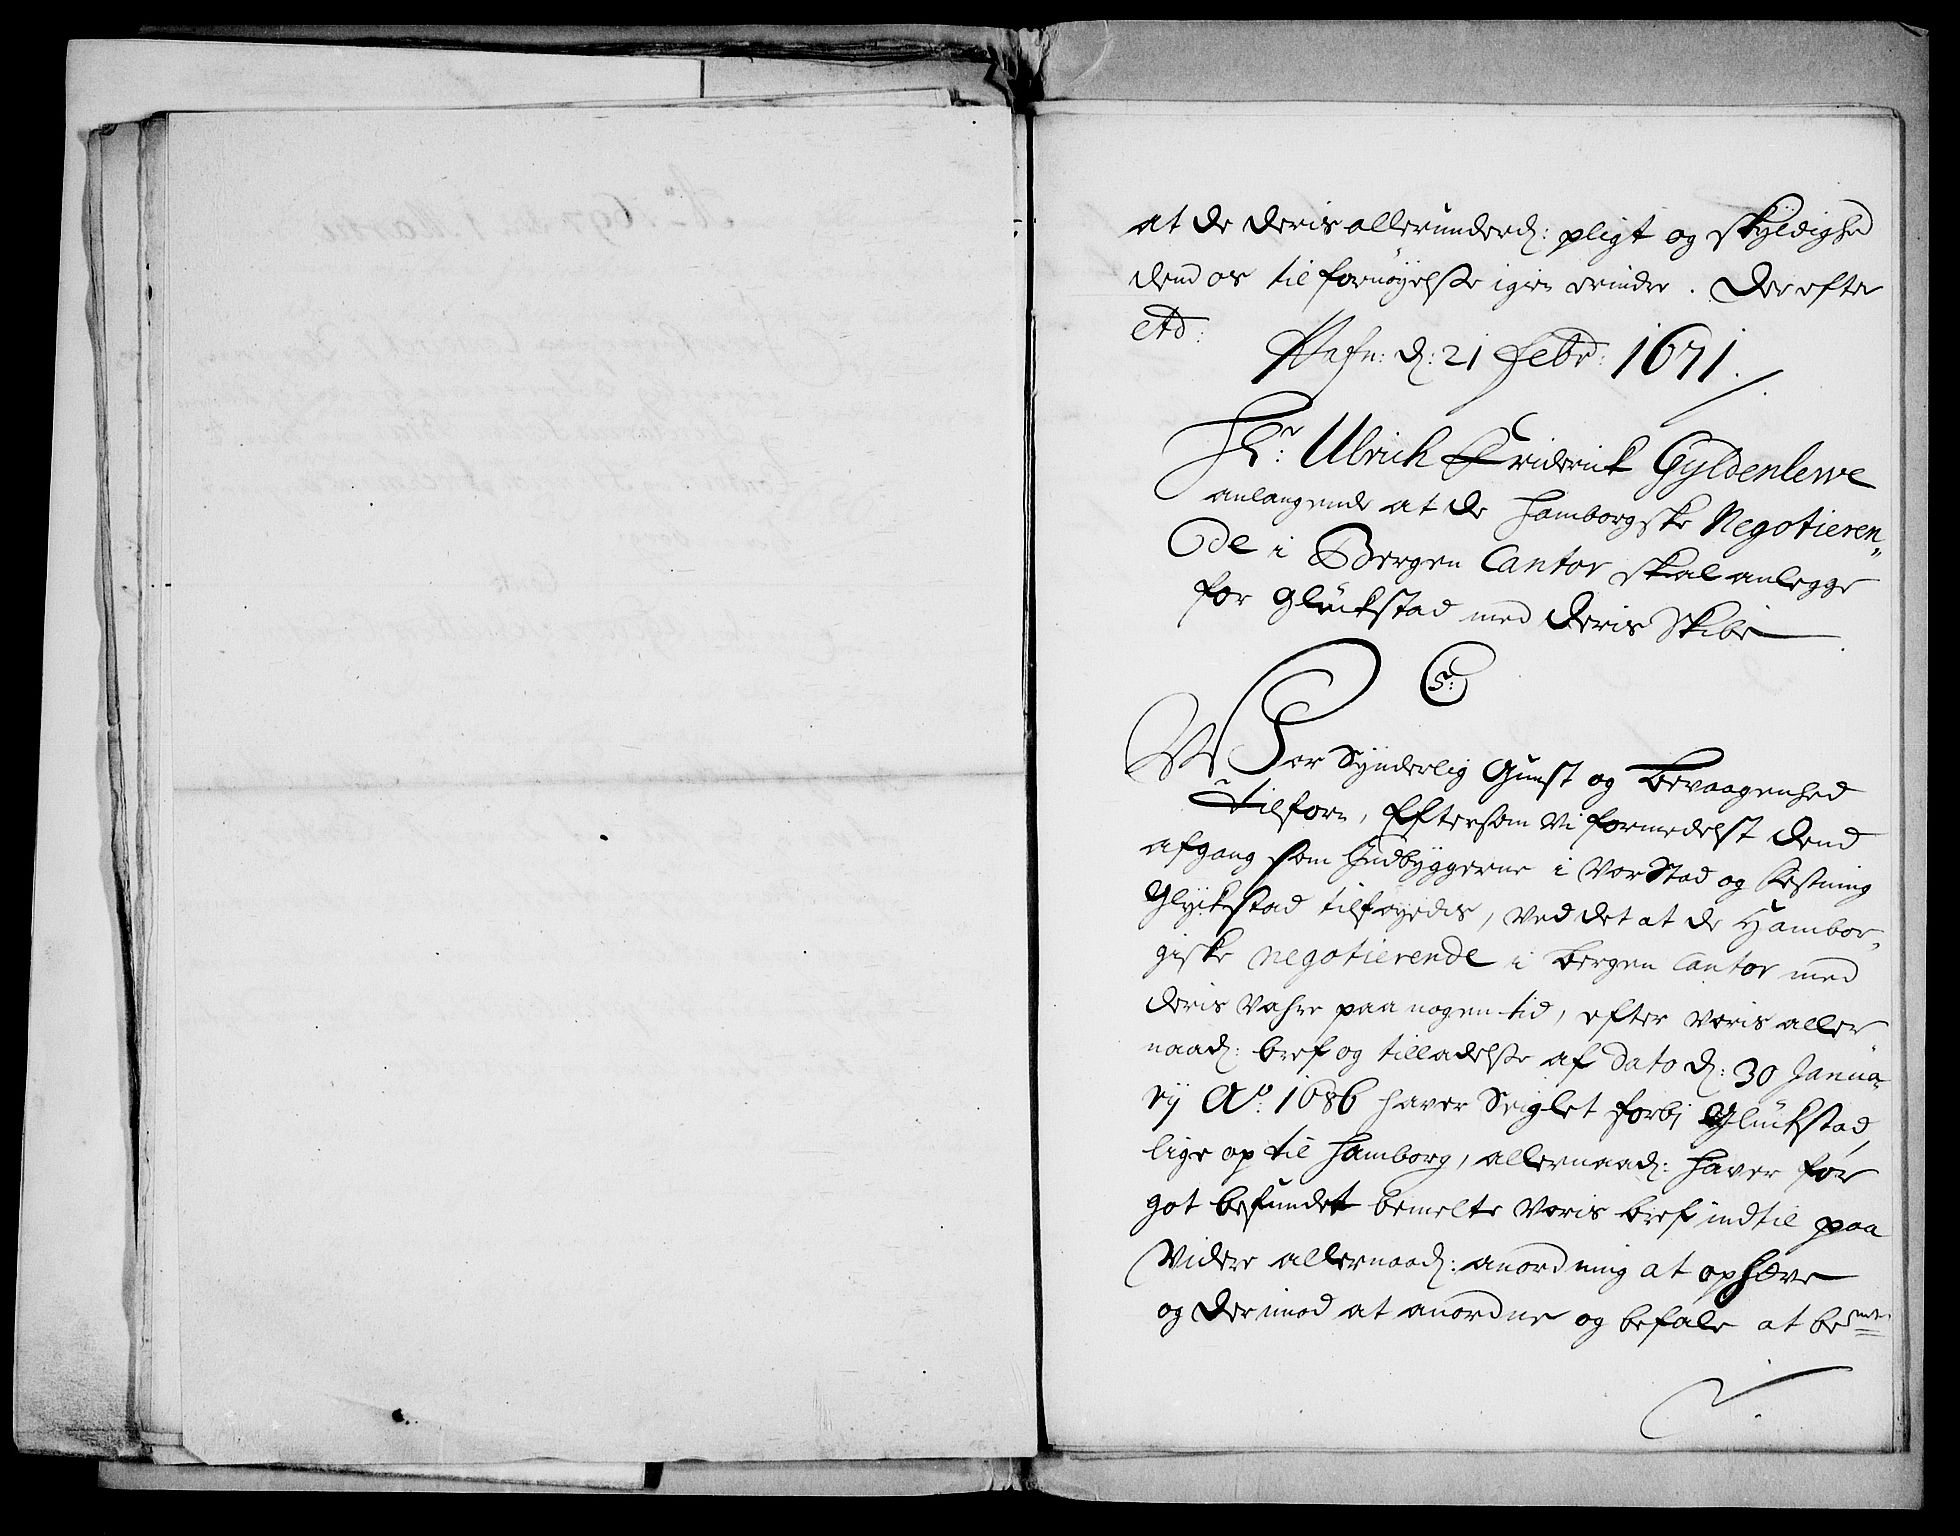 at de deris allerunderd: pligt og skyldighed
dend os til fornøyelse igien erindre. Der efter
etc:
Hafn: d: 21 Febr: 1671.
Hr: Ulrich Friderick Gyldenlewe
anlangende at de Hamborgske Negotieren„
de i Bergen Cantor skal anlegge
for Glückstad med deris Skibe
5:
Vor Synderlig Gunst og Bevaagenhed
tilforn, Eftersom Vi formedelst dend
afgang som Indbyggerne i Vor Stad og Festning
Glyckstad tilføyedis, Ved det at de Hambor„
giske negotierende i Bergen Cantor med
deris Vahre paa nogen tid, efter Voris aller
naad: bref og tilladelse af dato d: 30 Janua„
rij Ao: 1686 haver Seiglet forbi Glückstad,
lige op til Hamborg, allernaad: haver for
got befundet bemelte Voris bref indtil paa
Videre allernaad: anordning at ophæve
og der imod at anordne og befale at bemte